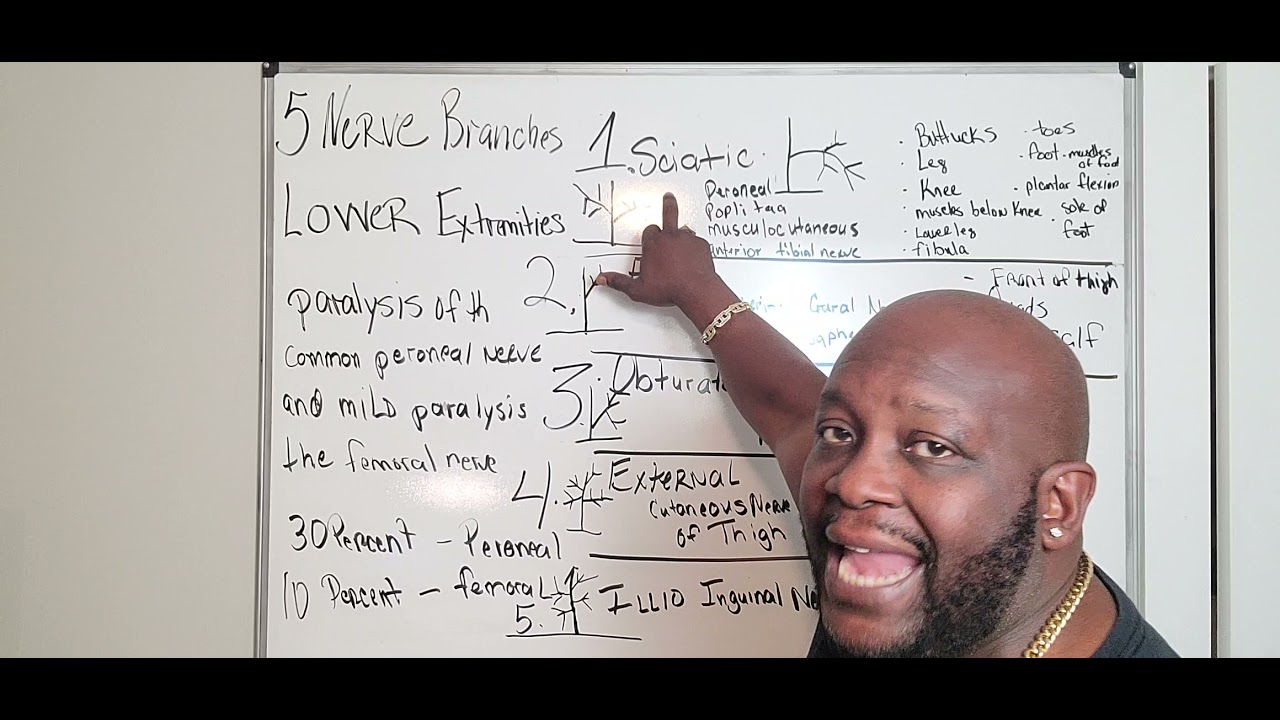 5 Nerve Branches
Lower Extremities
paralysis of th
common peroneal nerve
and mild paralysis
the femoral nerve
30 Percent - Peroneal
10 Percent - femoral
1. Sciatic
Peroneal
Poplitea
musculocutaneous
anterior tibial nerve
. Buttucks
. Leg
. Knee
. muscles below Knee
. Lower leg
. fibula
. toes
. foot - muscles
of foot
. plantar flexion
. sole of
foot
2.
- Front of thigh
alf
3. Obturat
4. External
Cutaneous Nerve
of Thigh
5. Illio Inguinal Ne